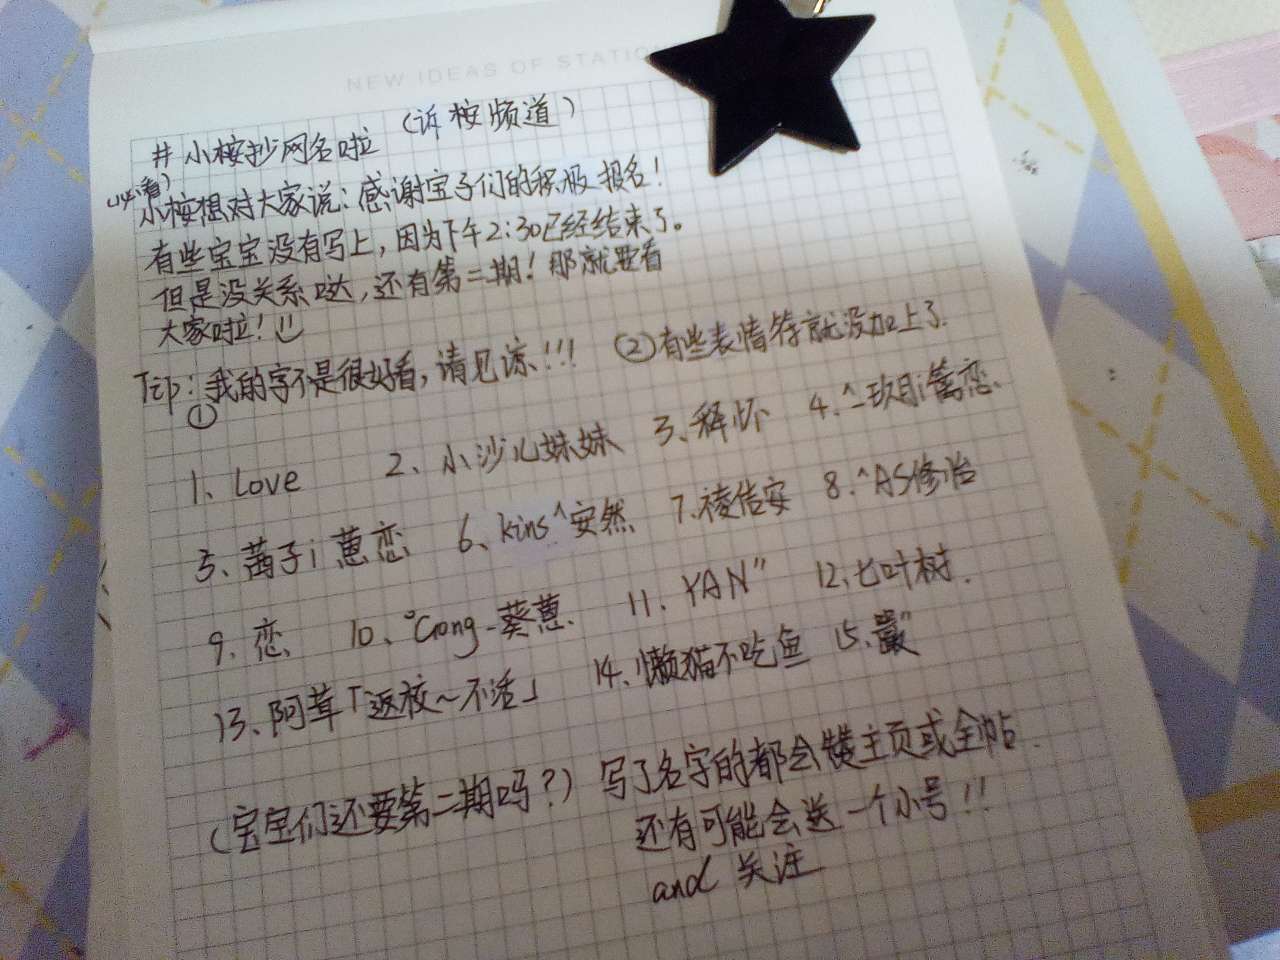 NEW IDEAS OF STATIO
#小桉抄网名啦 (诉桉频道)
(必看)
小桉想对大家说:感谢宝子们的积极报名!
有些宝宝没有写上,因为下午2:30已经结束了。
但是没关系哒,还有第二期!那就要看
大家啦!
Tip:①我的字不是很好看,请见谅!!! ②有些表情符就没加上了.
1、Love 2、小沙儿妹妹 3、释怀 4.^_玖月i篱恋.
5、茜子i葱恋 6、kins^安然 7.祾佶安 8.^AS修治
9.恋 10、°Cong-葵葱. 11.YAN" 12.七叶树.
13、阿草「返校~不活」 14、懒猫不吃鱼 15、
(宝宝们还要第二期吗?) 写了名字的都会赞主页或全帖.
还有可能会送一个小号!!
and 关注